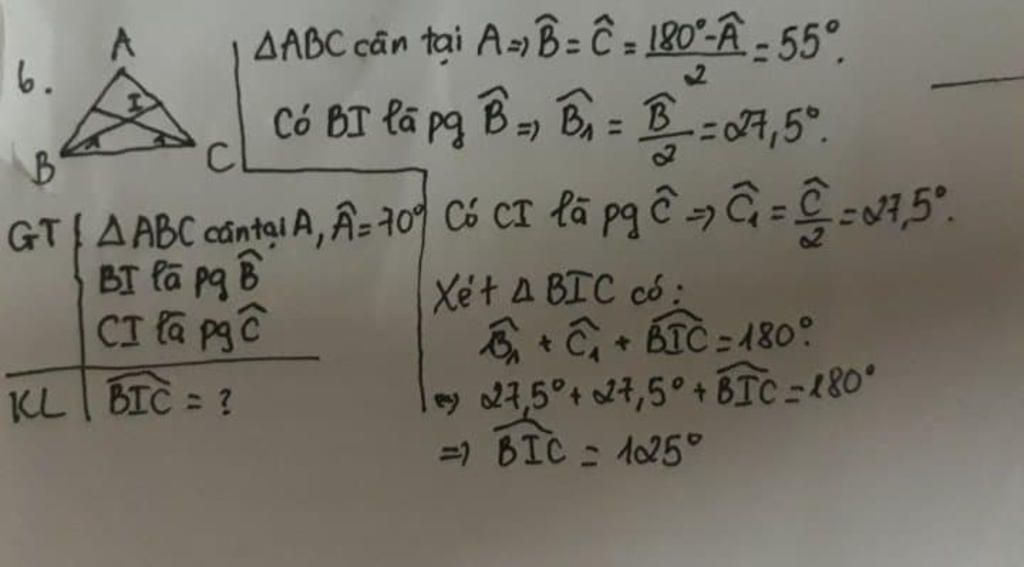 6.
A
I
B
C
GT | ΔABC cân tại A, Â = 70°
BI là pg B̂
CI là pg Ĉ
KL | B͡IC = ?
ΔABC cân tại A => B̂ = Ĉ = (180° - Â)/2 = 55°.
Có BI là pg B̂ => B̂₁ = B̂/2 = 27,5°.
Có CI là pg Ĉ => Ĉ₁ = Ĉ/2 = 27,5°.
Xét Δ BIC có:
B̂₁ + Ĉ₁ + B͡IC = 180°.
=> 27,5° + 27,5° + B͡IC = 180°
=> B͡IC = 125°